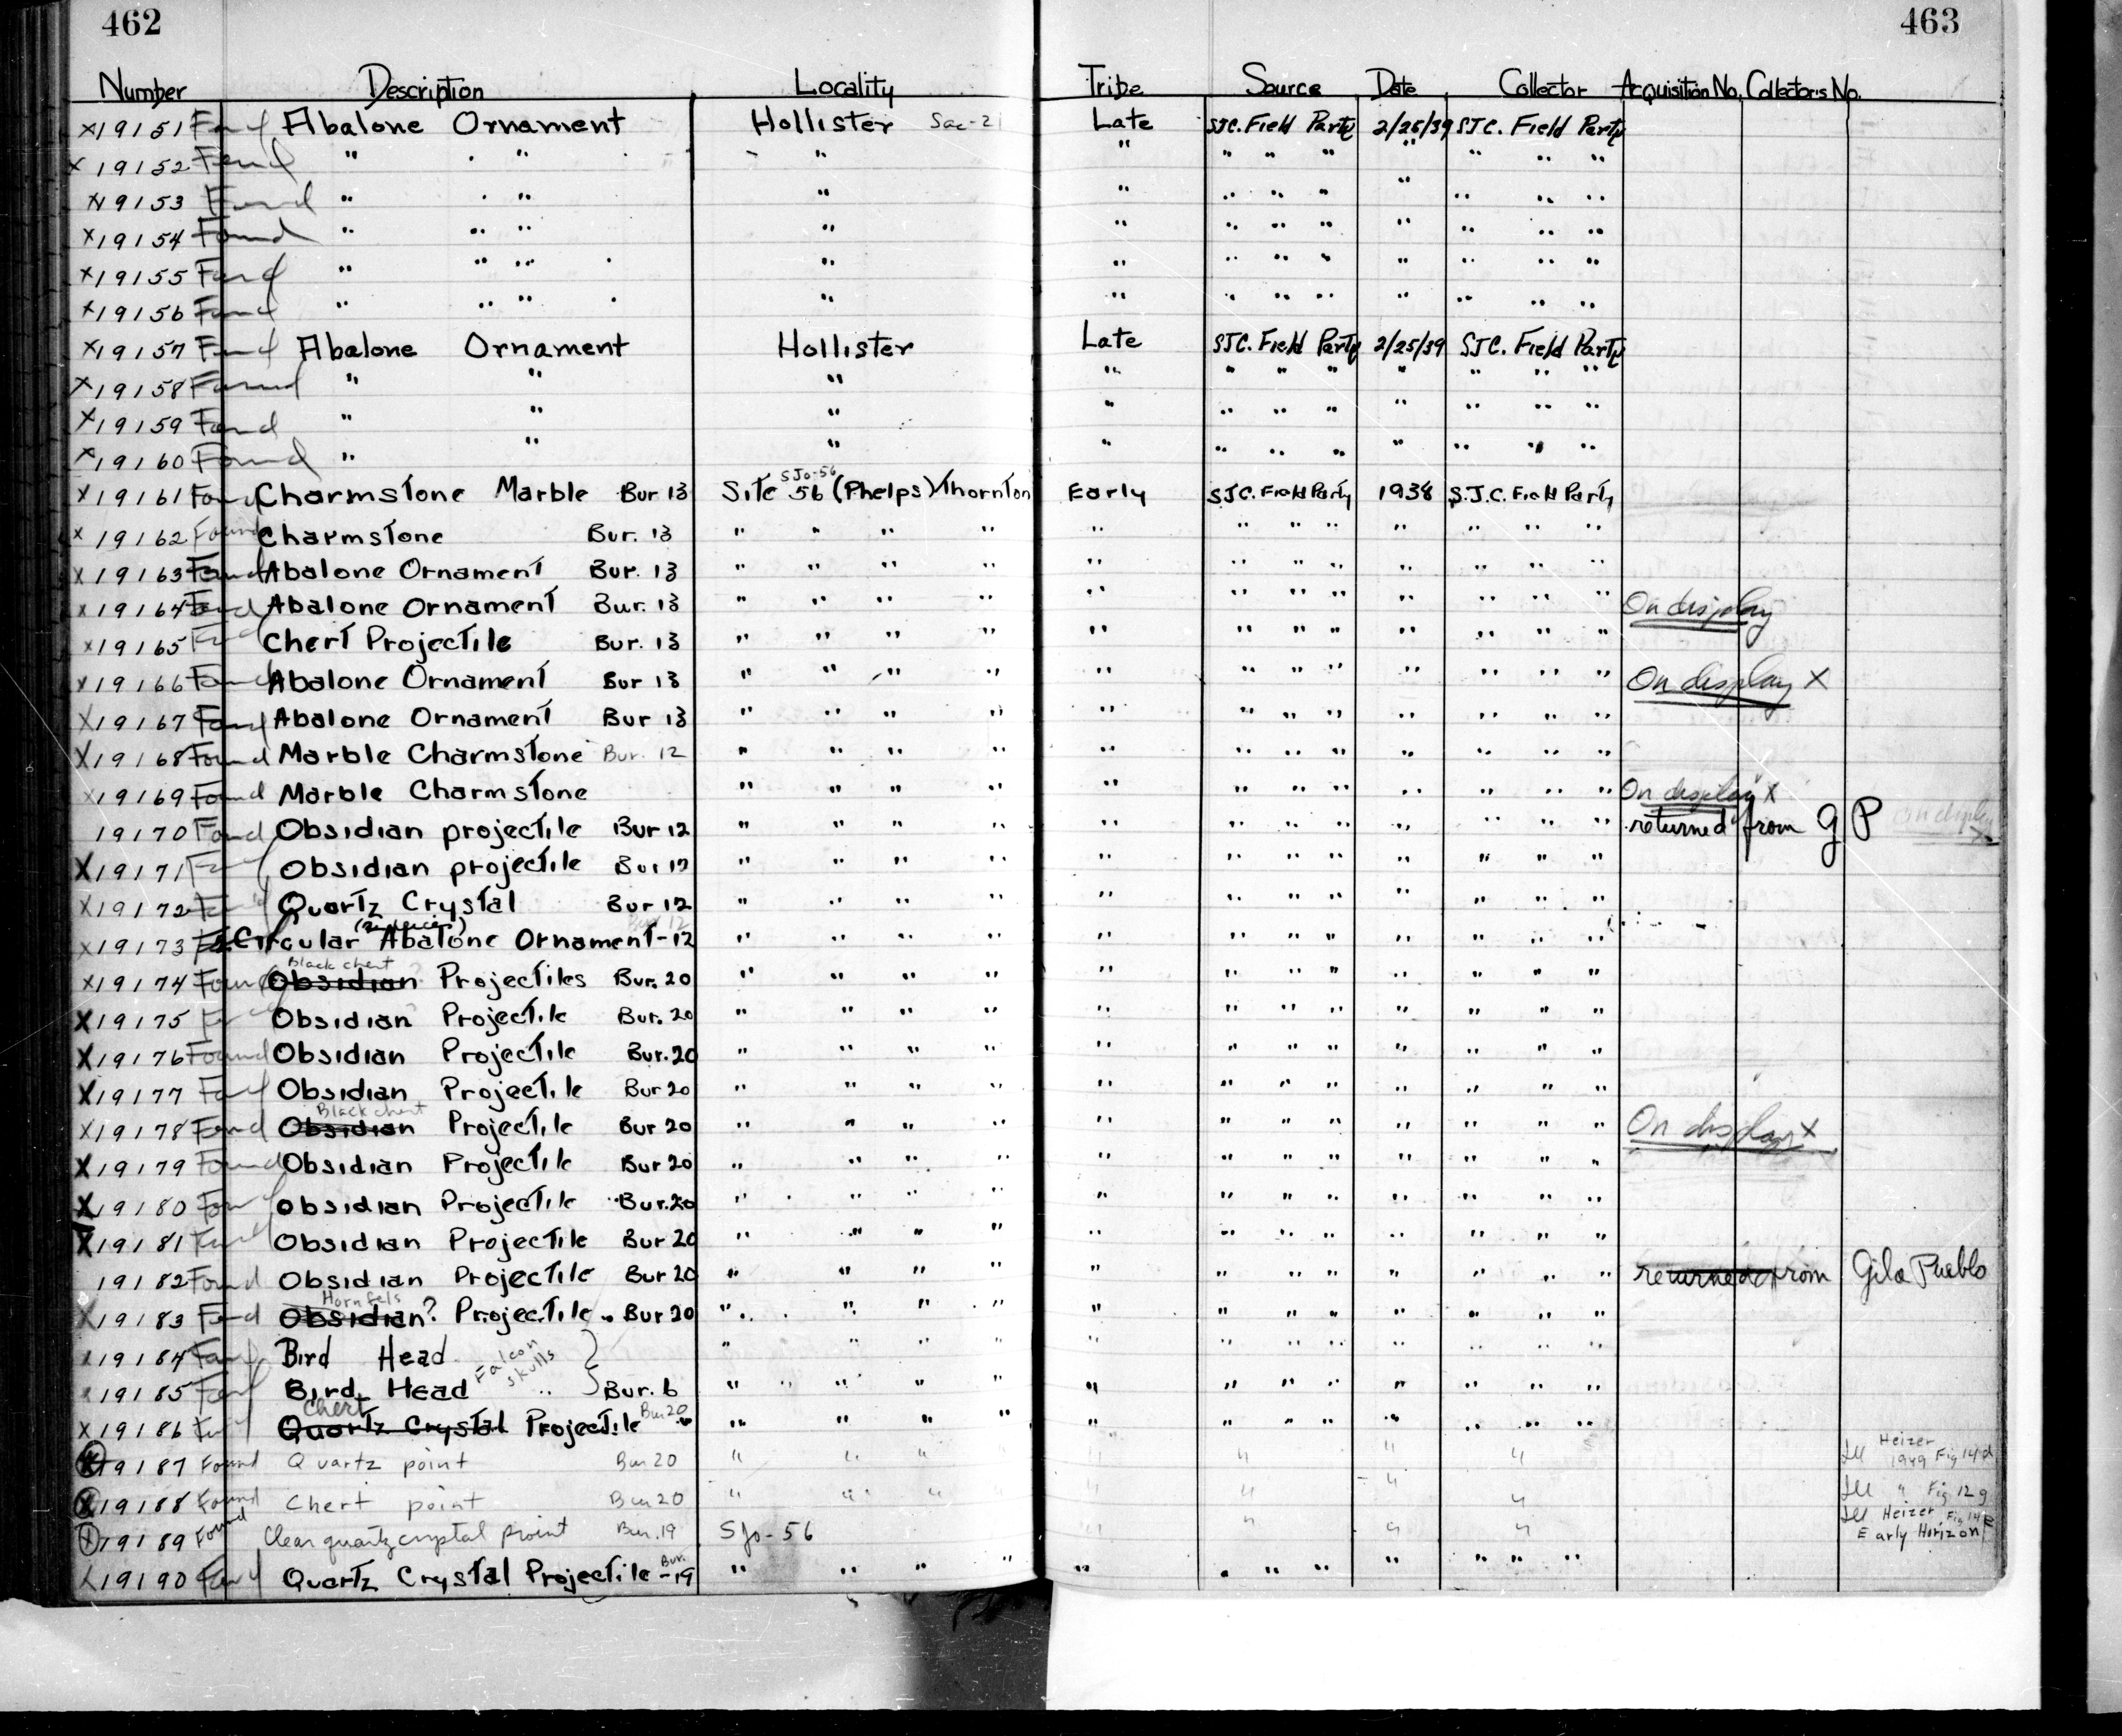 462 463
Number Description Locality Tribe Source Date Collector Acquisition No. Collectors No.
x19151 Found Abalone Ornament Hollister Sac-21 Late SJC. Field Party 2/25/39 SJC. Field Party
x 19152 Found " " " " " " " " " " "
x19153 Found " " " " " " " " " " "
x19154 Found " " " " " " " " " " "
x19155 Found " " " " " " " " " " "
x19156 Found " " " " " " " " " " "
x19157 Found Abalone Ornament Hollister Late SJC. Field Party 2/25/39 SJC. Field Party
x19158 Found " " " " " " " " " " "
x19159 Found " " " " " " " " " " "
x19160 Found " " " " " " " " " " "
x19161 Found Charmstone Marble Bur 13 Site 56 SJo-56 (Phelps) Thornton Early SJC. Field Party 1938 S.J.C. Field Party
x 19162 Found Charmstone Bur. 13 " " " " " " " " " " " "
x19163 Found Abalone Ornament Bur. 13 " " " " " " " " " " " "
x19164 Found Abalone Ornament Bur. 13 " " " " " " " " " " " " On display
x19165 Found Chert Projectile Bur. 13 " " " " " " " " " " " "
x19166 Found Abalone Ornament Bur 13 " " " " " " " " " " " " On display X
x19167 Found Abalone Ornament Bur 13 " " " " " " " " " " " "
x19168 Found Marble Charmstone Bur. 12 " " " " " " " " " " " "
x19169 Found Marble Charmstone " " " " " " " " " " " " On display X
19170 Found Obsidian projectile Bur 12 " " " " " " " " " " " " returned from G P On display X
X19171 Found Obsidian projectile Bur 12 " " " " " " " " " " " "
x19172 Found Quartz Crystal Bur 12 " " " " " " " " " " " "
x19173 Circular Abalone Ornament-12 Bur 12 " " " " " " " " " " " "
x19174 Found Obsidian Black chert Projectiles Bur. 20 " " " " " " " " " " " "
X19175 Found Obsidian Projectile Bur. 20 " " " " " " " " " " " "
X19176 Found Obsidian Projectile Bur. 20 " " " " " " " " " " " "
X19177 Found Obsidian Projectile Bur 20 " " " " " " " " " " " "
x19178 Found Obsidian Black chert Projectile Bur 20 " " " " " " " " " " " " On display X
X19179 Found Obsidian Projectile Bur 20 " " " " " " " " " " " "
X19180 Found Obsidian Projectile Bur. 20 " " " " " " " " " " " "
X19181 Found Obsidian Projectile Bur 20 " " " " " " " " " " " "
19182 Found Obsidian Projectile Bur 20 " " " " " " " " " " " " returned from Gila Pueblo
X19183 Found Obsidian? Hornfels Projectile Bur 20 " " " " " " " " " " " "
x19184 Found Bird Head " " " " " " " " " " " "
Falcon skulls
x19185 Found Bird Head " } Bur. 6 " " " " " " " " " " " "
x19186 Found Quartz Crystal Chert Projectile Bur 20 " " " " " " " " " " " "
X19187 Found Quartz point Bur 20 " " " " " " " Ill Heizer 1949 Fig 14d
X19188 Found Chert point Bur 20 " " " " " " " Ill " Fig 12g
X19189 Found Clear quartz crystal point Bur. 19 SJo-56 " " " " Ill Heizer Fig 14
Early Horizon
x19190 Found Quartz Crystal Projectile Bur.-19 " " " " " " " " " " " "